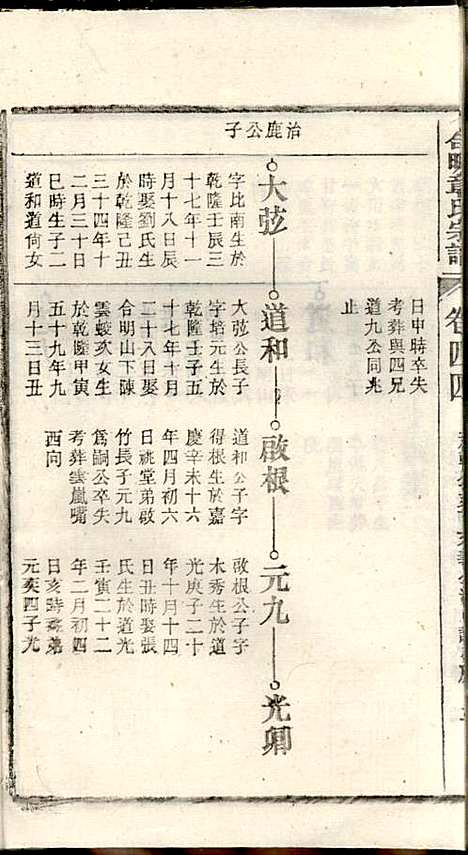 合明章氏宗譜
卷四四
治鹿公子
大弦
字比南生於
乾隆壬辰三
十七年十一
月十八日辰
時娶劉氏生
於乾隆己丑
三十四年十
二月三十日
巳時生子二
道和道尙女
日申時卒失
考葬與四兄
道九公同兆
止
道和
大弦公長子
字培元生於
乾隆壬子五
十七年十月
二十八日娶
合明山下陳
雲蛟次女生
於乾隆甲寅
五十九年九
月十三日丑
啟根
道和公子字
得根生於嘉
慶辛未十六
年四月初六
日祧堂弟啟
竹長子元九
爲嗣公卒失
考葬雲嵐嘴
西向
元九
啟根公子字
木秀生於道
光庚子二十
年十月十四
日丑時娶張
氏生於道光
壬寅二十二
年二月初四
日亥時祧弟
元奕四子光
光卿